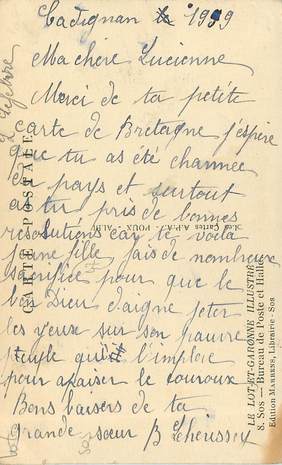 Cadignan le 1939
Ma chère Lucienne
Merci de ta petite
carte de Bretagne j'espère
que tu as été charmee
du pays et surtout
as tu pris de bonnes
resolutions car te voilà
jeune fille, fais de nombreux
sacrifice pour que le
bon Dieu daigne jeter
les yeux sur son pauvre
peuple qui l'implore
pour apaiser le couroux
Bons baisers de ta
grande sœur B
CARTE POSTALE
LE LOT-ET-GARONNE ILLUSTRÉ
8. Sos — Bureau de Poste et Halle
Edition MARRENS, Librairie - Sos